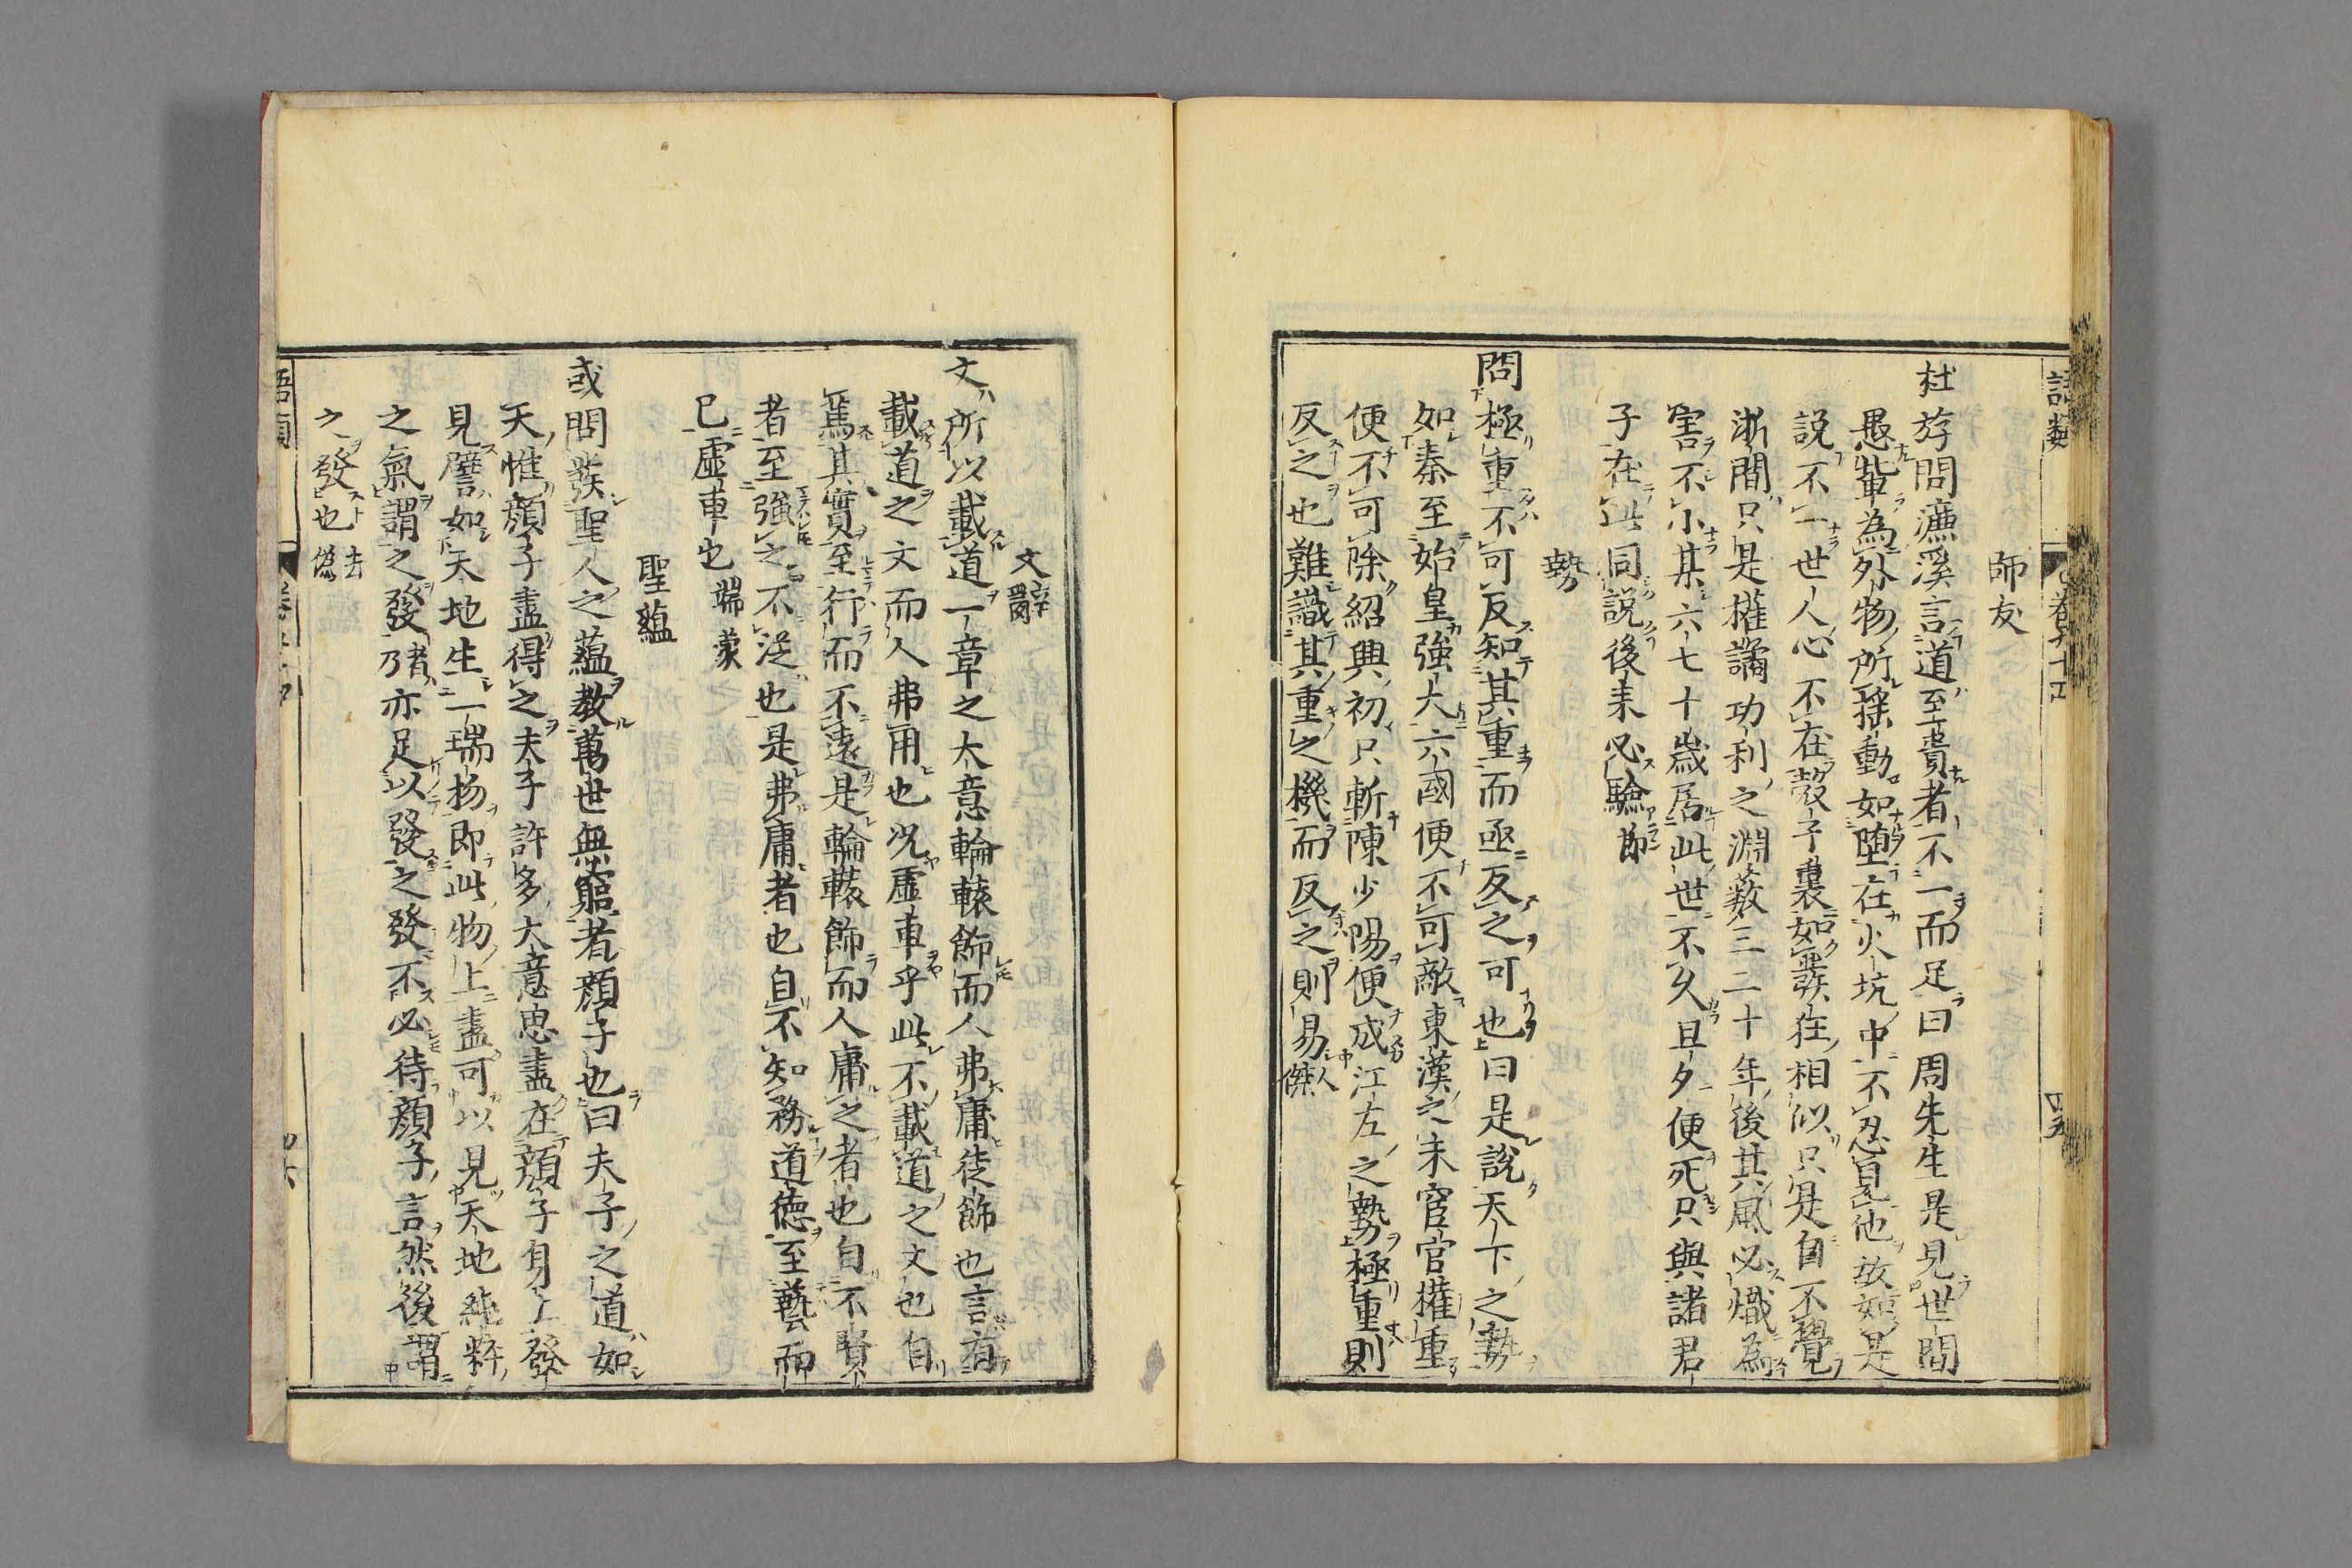 師友
杜斿問濂溪言道至貴者不一而足曰周先生是見世間
愚輩為外物所搖動如墮在火坑中不忍見他故如是
説不一世人心不在殼子裏如發狂相似只是自不覺
浙間只是權譎功利之淵藪三二十年後其風必熾為
害不小某六七十歳居此世不久旦夕便死只與諸君
子在此同説後来必驗節
勢
問極重不可反知其重而亟反之可也曰是說天下之勢
如秦至始皇強大六國便不可敵東漢之末宦官權重
便不可除紹興初只斬陳少陽便成江左之勢極重則
反之也難識其重之機而反之則易人傑
文辭
文所以載道一章之大意輪轅飾而人弗庸徒飾也言有
載道之文而人弗用也况虚車乎此不載道之文也自
篤其實至行而不遠是輪轅飾而人庸之者也自不賢
者至強之不従也是弗庸者也自不知務道德至藝而
已虛車也端蒙
聖蘊
或問發聖人之蘊教萬世無窮者顔子也曰夫子之道如
天惟顔子盡得之夫子許多大意思盡在顔子身上發
見譬如天地生一瑞物即此物上盡可以見天地純粹
之氣謂之發乃亦足以發之發不必待顔子言然後謂
之發也去偽
語類